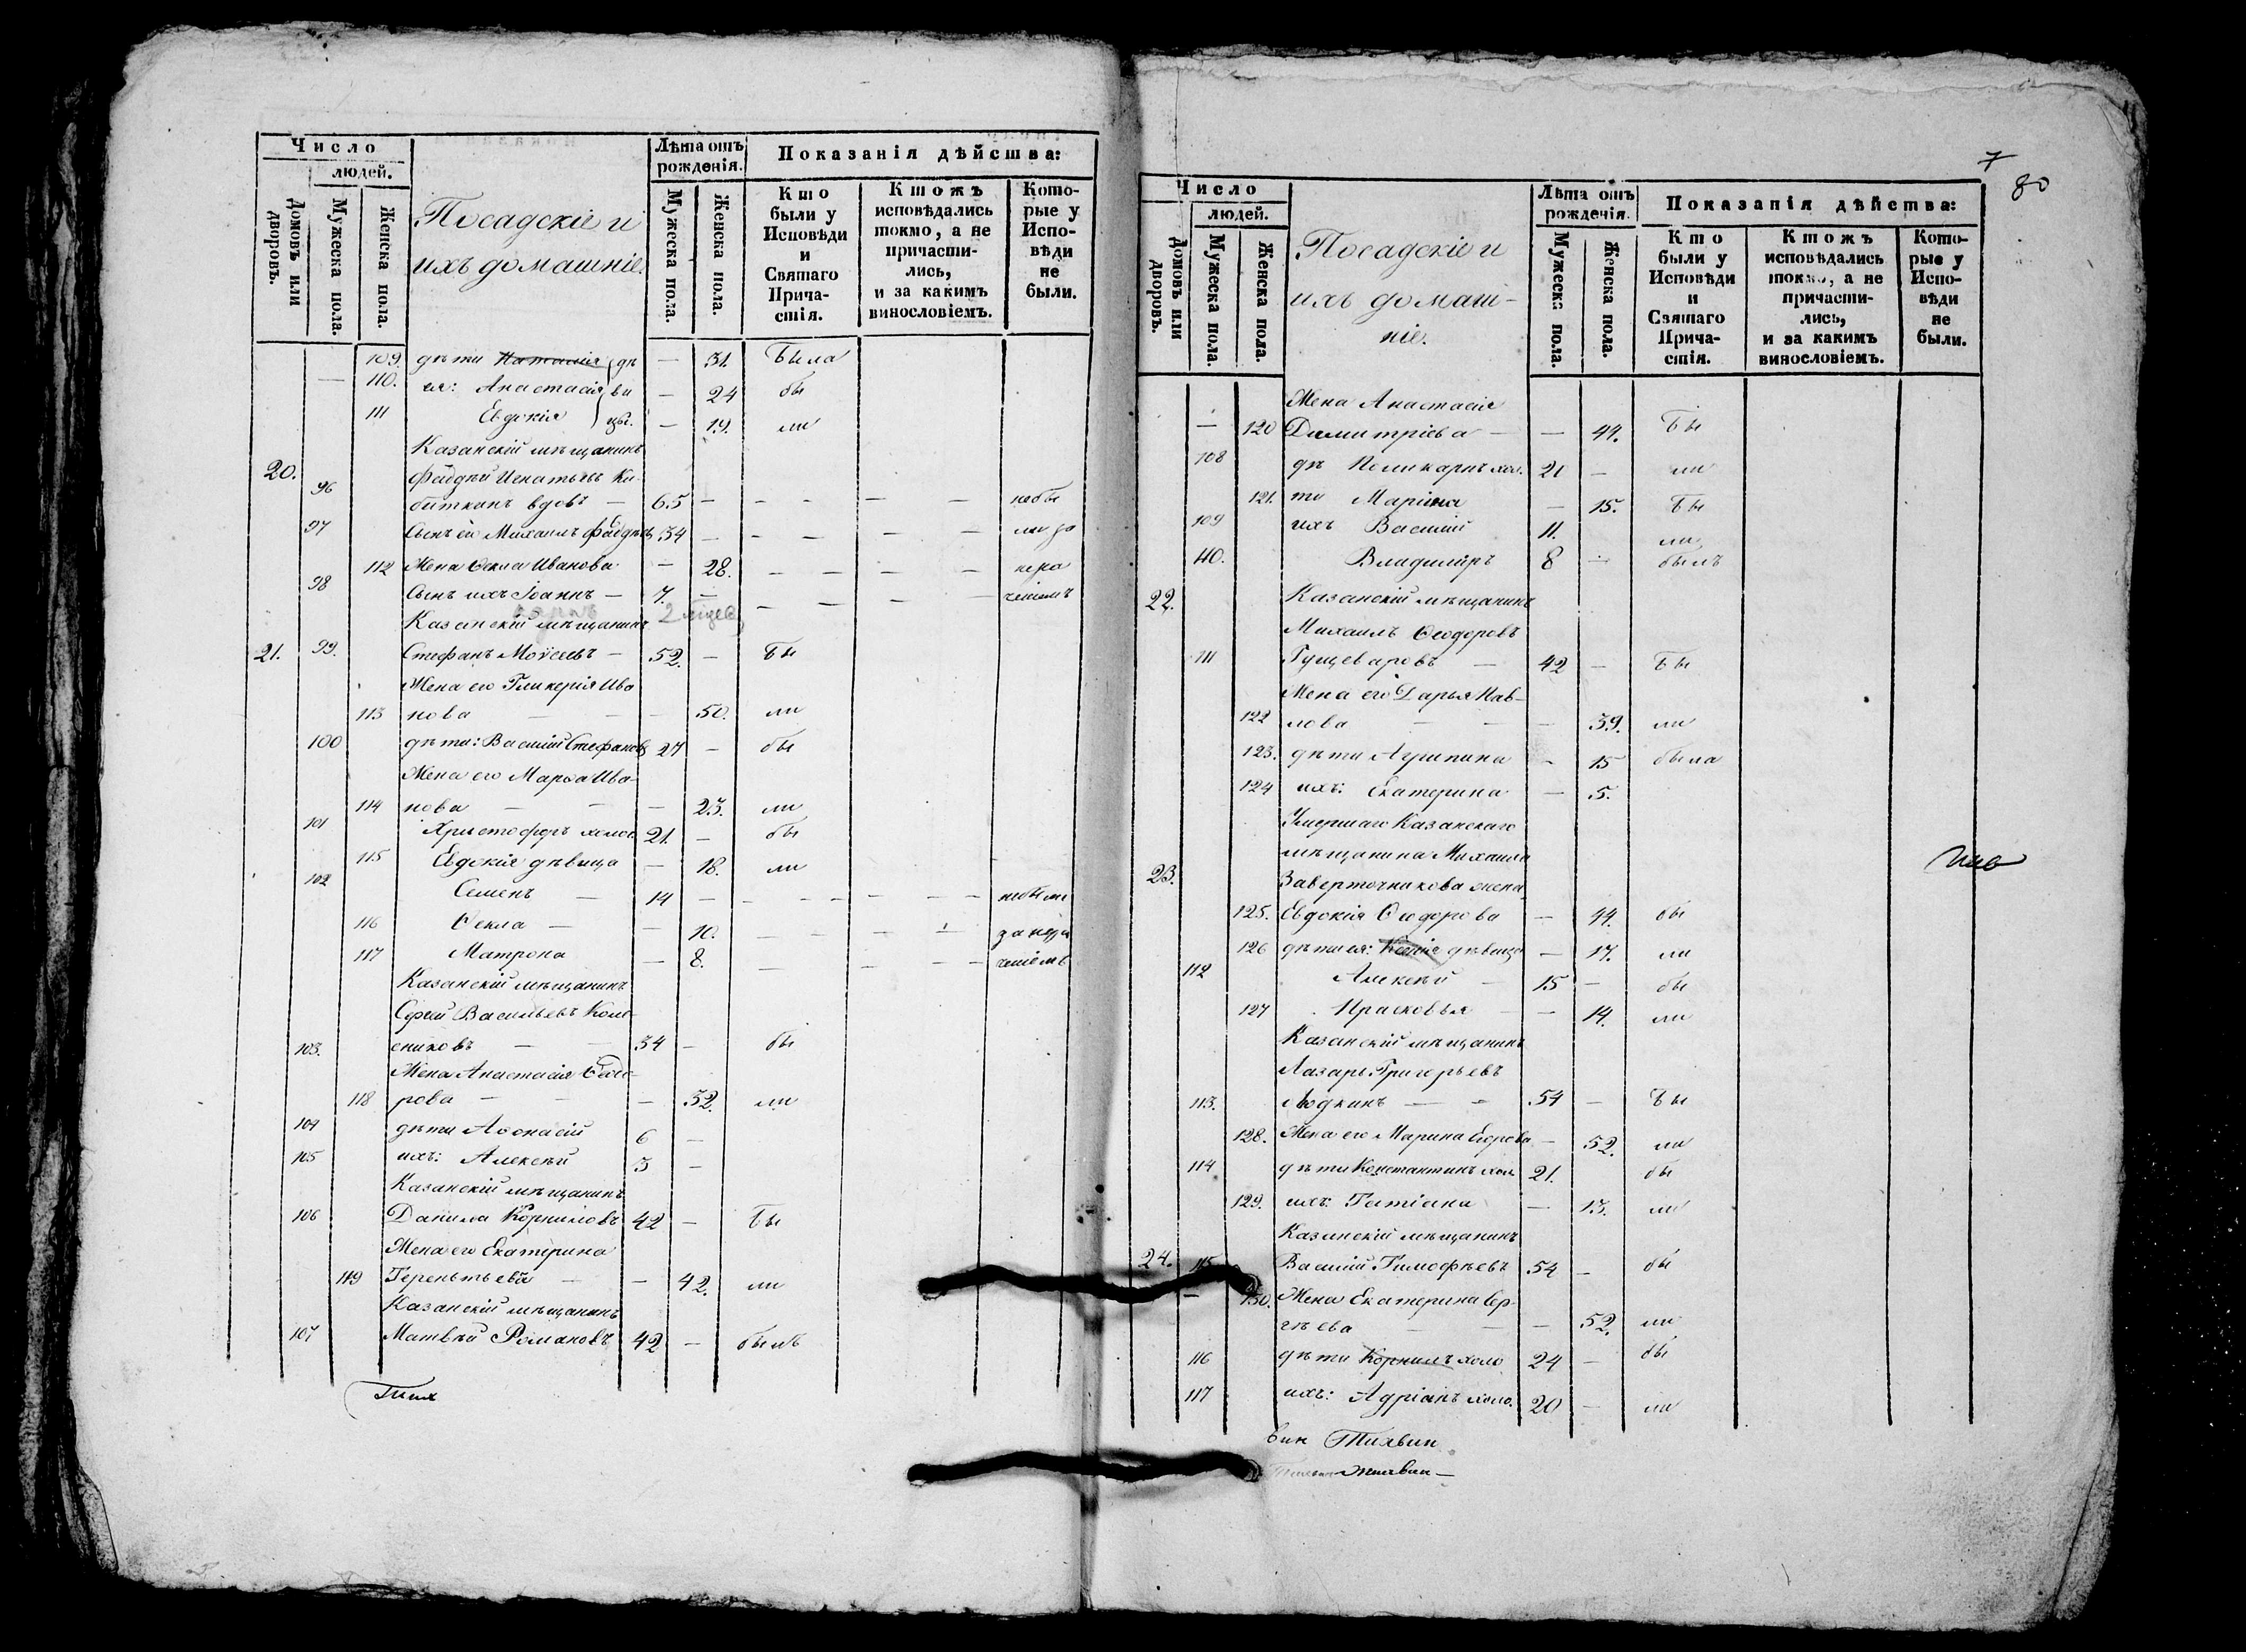 Число
людей.
Домовъ или дворовъ.
Мужеска пола.
Женска пола.
Посадскіе и
ихъ домашніе.
Лѣта отъ
рожденія.
Мужеска пола.
Женска пола.
Показанія дѣйства:
Кто
были у
Исповѣди
и
Святаго
Прича-
стія.
Ктожъ
исповѣдались
токмо, а не
причасти-
лись,
и за какимъ
винословіемъ.
Кото-
рые у
Испо-
вѣди
не
были.
109. дѣти Наталія дѣ — 31. была
— 110. ея: Анастасія ви — 24 бы
111 Евдокія цы. — 19. ли
Казанскій мѣщанинъ
20. Фаддѣй Игнатьевъ Ки-
96 биткинъ вдовъ — 65 — — — — — небы
97 Сынъ его Михаилъ Фаддѣевъ 34 — — — — — ли за
112 Жена Ѳекла Иванова — 28. — — — — нера
98 Сынъ ихъ Іоаннъ — 7. — — — — — чѣніемъ
Казанскій мѣщанинъ
21. 99. Стефанъ Моѵсеевъ — 52. — бы
Жена его Гликерія Ива
113 нова — — — 50. ли
100 дѣти: Василій Стефановъ 27 — бы
Жена его Марѳа Ива-
114 нова — — — 23. ли
101 Христофоръ холос 21. — бы
115 Евдокія дѣвица — 18. ли
102 Семенъ — 14 — — — — — — небыли
116 Ѳекла — — 10. — — — —
117 Матрона — 8. — — — —
Казанскій мѣщанинъ
Сергій Васильевъ Коле-
103. сниковъ — — 34 — бы
Жена Анастасія Ѳедо-
118 рова — — — 32. ли
104 дѣти Аѳонасій 6 —
105 ихъ: Алексѣй 3 —
Казанскій мѣщанинъ
106 Данила Корниловъ 42 — бы
Жена его Екатерина
119 Терентьева — — 42. ли
Казанскій мѣщанинъ
107 Матвѣй Романовъ 42 — былъ
Тих
7
80
Число
людей.
Домовъ или дворовъ.
Мужеска пола.
Женска пола.
Посадскіе и
ихъ домаш-
ніе.
Лѣта отъ
рожденія.
Мужеска пола.
Женска пола.
Показанія дѣйства:
Кто
были у
Исповѣди
и
Святаго
Прича-
стія.
Ктожъ
исповѣдались
токмо, а не
причасти-
лись,
и за какимъ
винословіемъ.
Кото-
рые у
Испо-
вѣди
не
были.
Жена Анастасія
— 120 Димитріева — — 44. бы
108 дѣ Поликарпъ хол. 21 — ли
121. ти Марина — 15. бы
109 ихъ Василій 11. ли
110. Владиміръ 8 — былъ
22. Казанскій мѣщанинъ
Михаилъ Ѳеодоровъ
111 Гущеваровъ — 42 — бы
Жена его Дарья Пав-
122 лова — — — 39. ли
123. дѣти Агрипина — 15 была
124 ихъ: Екатерина — 5.
Умершаго Казанскаго
мѣщанина Михаила
23. Заверточникова жена
125. Евдокія Ѳеодорова — 44. бы
126 дѣти ея: Ксенія дѣвица — 17. ли
112 Алексѣй — 15 — бы
127 Прасковья — — 14. ли
Казанскій мѣщанинъ
Лазарь Григорьевъ
113. Людкинъ — — 54 — бы
128. Жена его Марина Егорова — 52. ли
114 дѣти Константинъ хол 21. бы
129. ихъ: Татіана — 13. ли
Казанскій мѣщанинъ
24. 115 Василій Тимофѣевъ 54 — бы
— 130. Жена Екатерина Сер-
гѣева — — — 52. ли
116 дѣти Корнилъ холо 24 — бы
117 ихъ: Адріанъ холо. 20 — ли
вин Тихвин